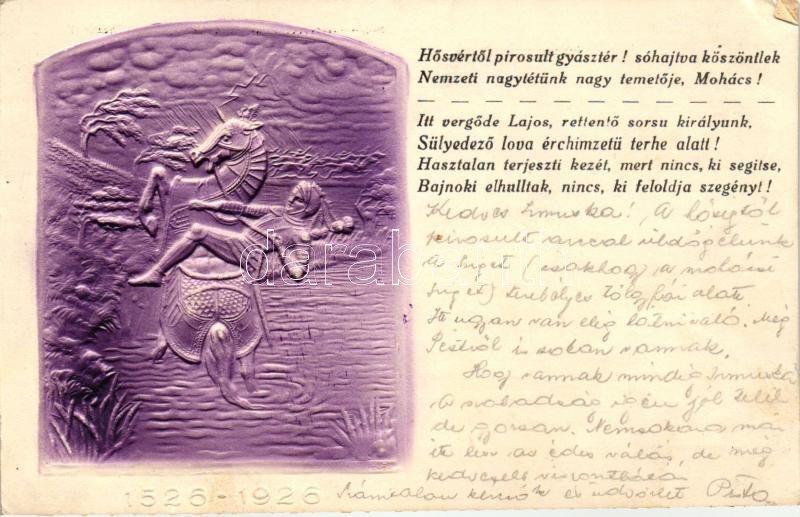 Hősvértől pirosult gyásztér! sóhajtva köszöntlek
Nemzeti nagytétünk nagy temetője, Mohács!
Itt vergőde Lajos, rettentő sorsu királyunk,
Sülyedező lova érchimzetü terhe alatt!
Hasztalan terjeszti kezét, mert nincs, ki segitse,
Bajnoki elhulltak, nincs, ki feloldja szegényt!
Kedves Irmuska! A hőségtől
kipirosult arccal üldögélünk
a sziget (csakhogy a mohácsi
sziget) terebélyes tölgyfái alatt.
Itt ugyan van elég látnivaló. Még
Pestről is sokan vannak.
Hogy vannak mindig Irmuska
A szabadság igen jól telik
de gyorsan. Nemsokára már
itt lesz az édes válás, de még
kedvesebb viszontlátás
Számtalan kézcsók és üdvözlet
1526-1926
darabanth